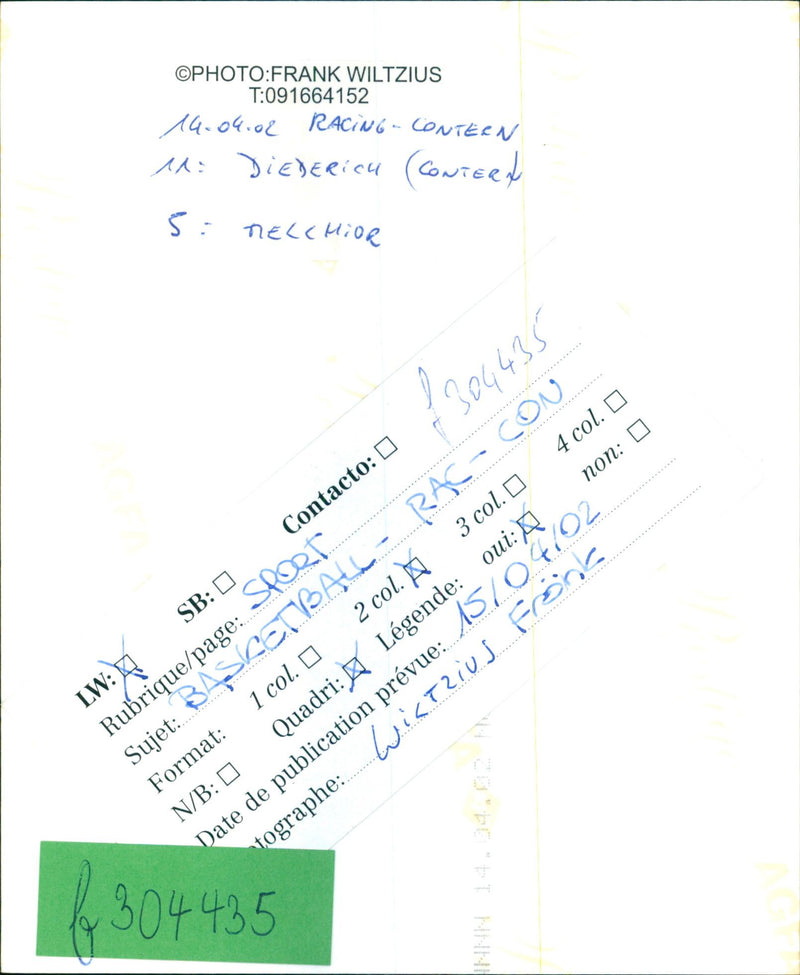 ©PHOTO:FRANK WILTZIUS
T:091664152
14.04.02 RACING - CONTERN
11: DIEDERICH (CONTERN)
5: MELCHIOR
f304435
LW: SB: Contacto:
Rubrique/page: SPORT
Sujet: BASKETBALL - RAC - CON
Format: 1 col. 2 col. 3 col. 4 col.
N/B: Quadri: Légende: oui: non:
Date de publication prévue: 15/04/02
otographe: WILTZIUS Fränk
14.04.02
AGFA
304435